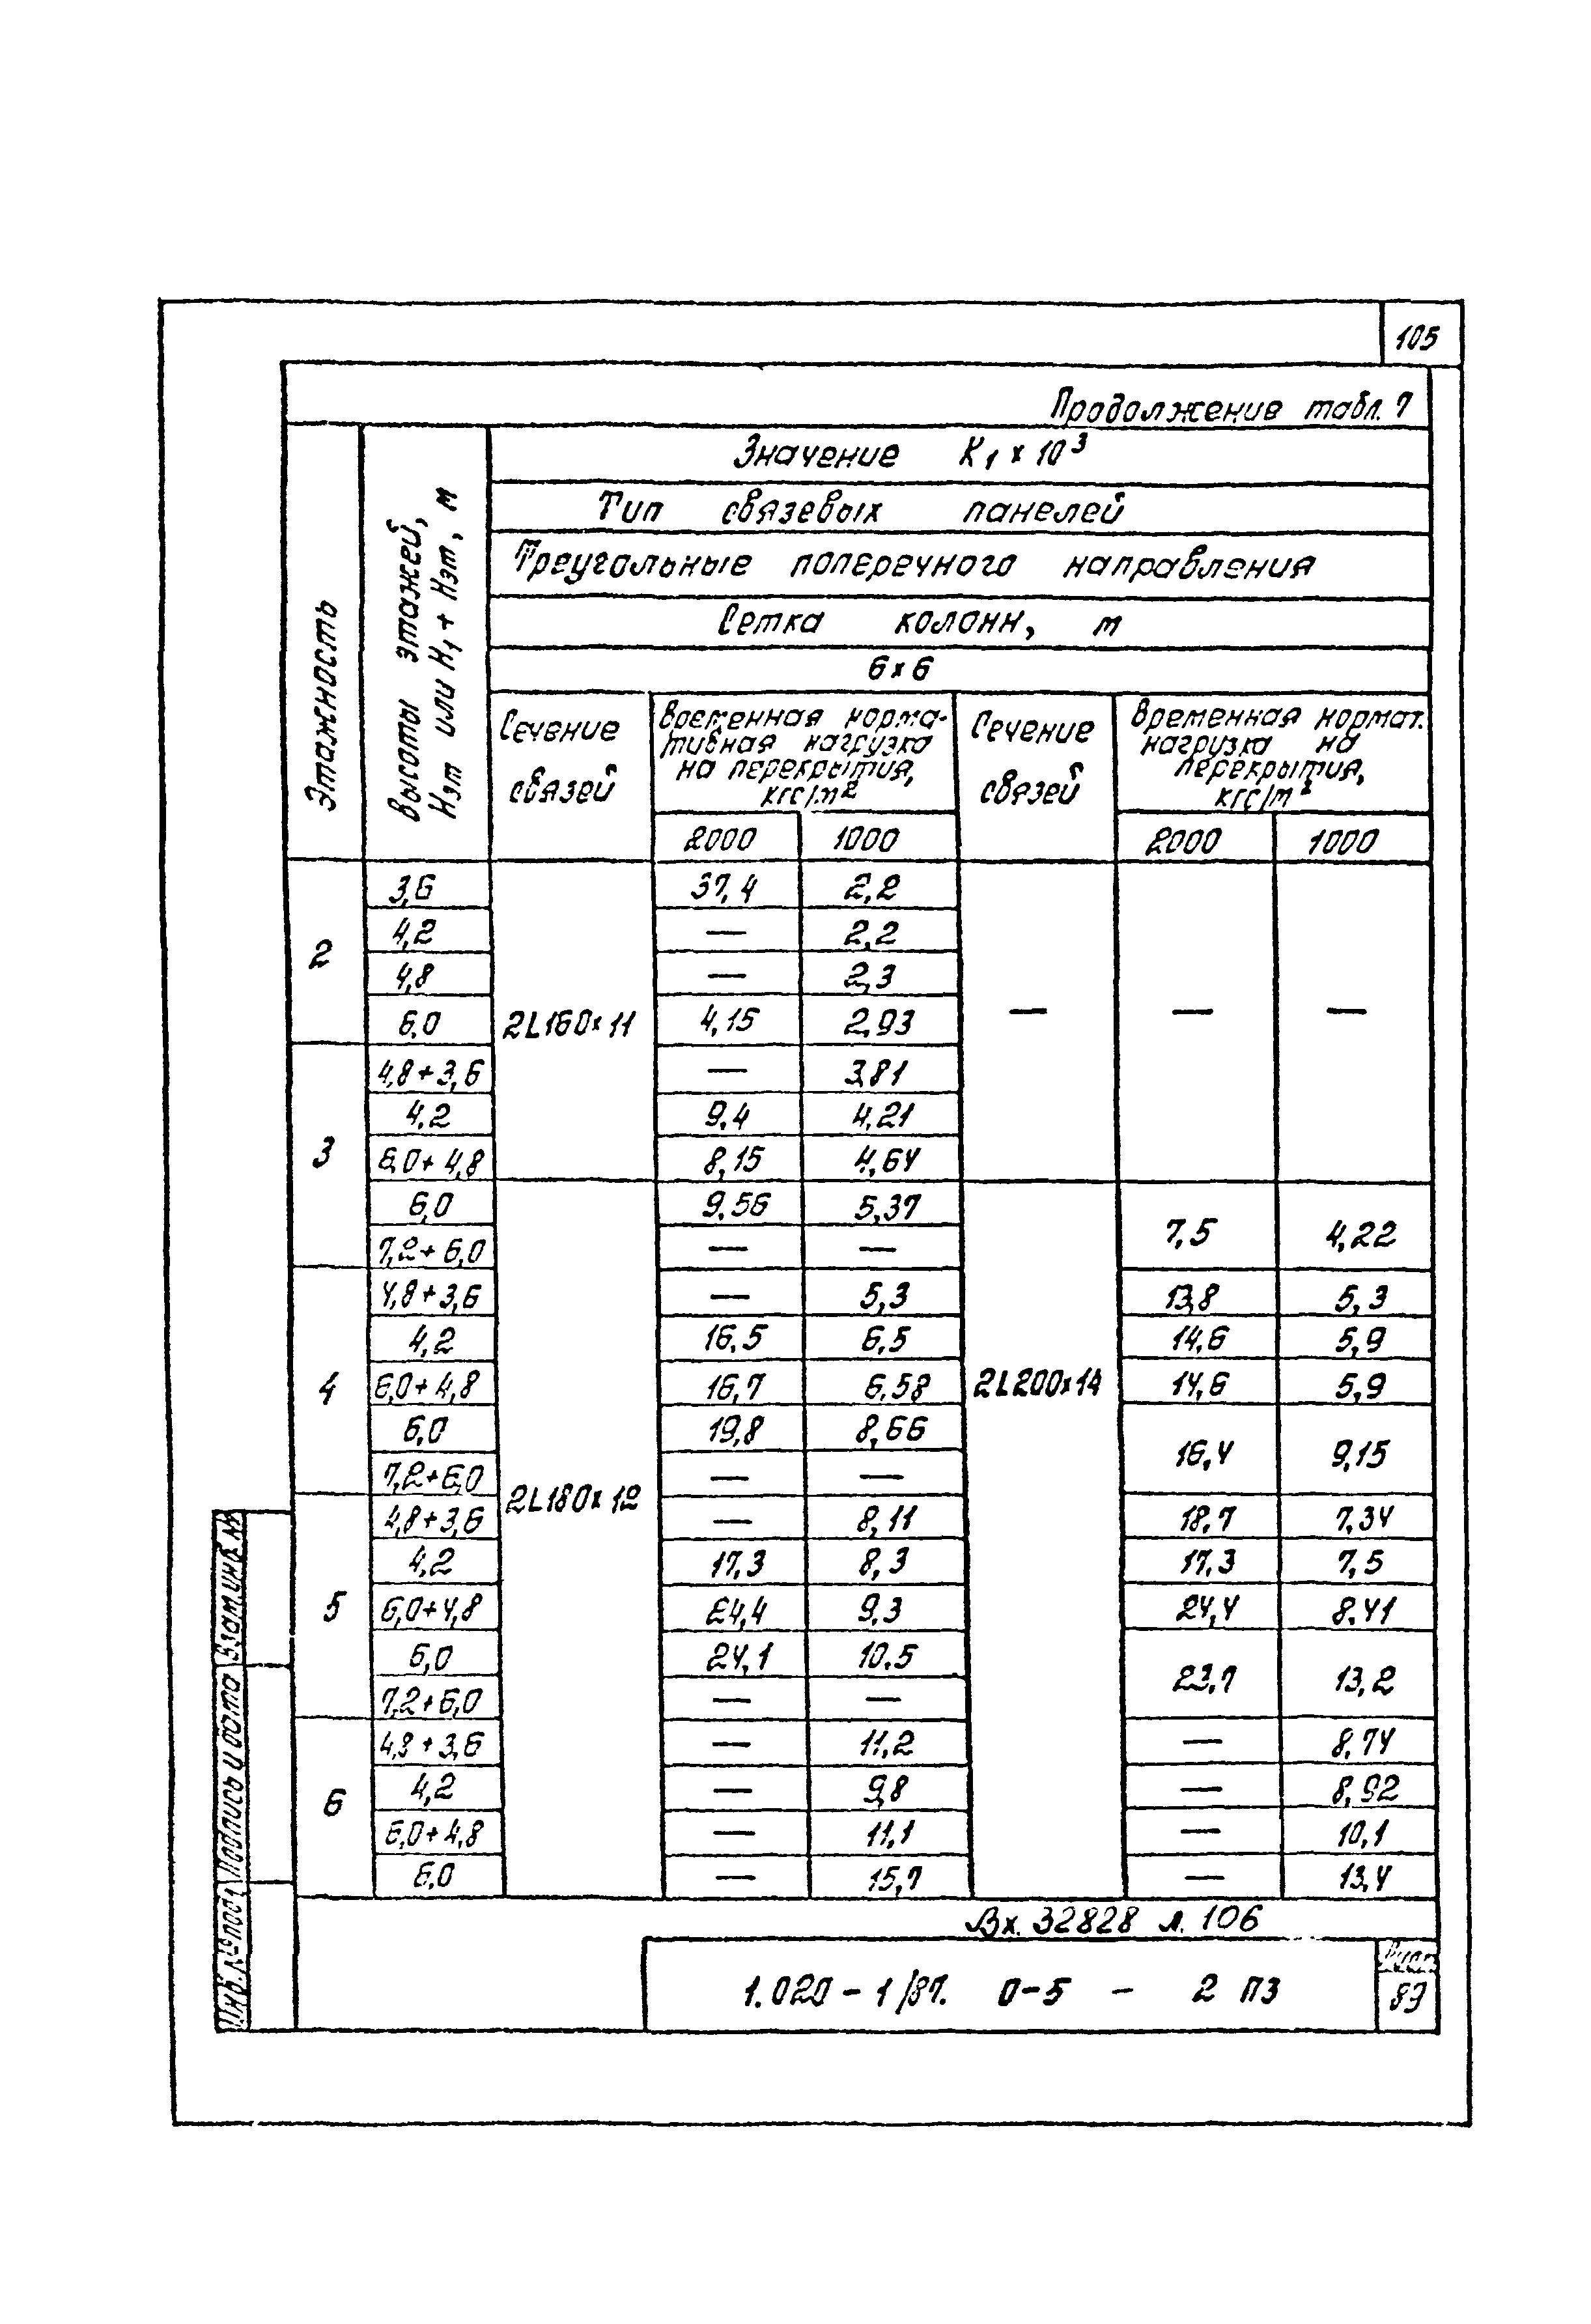 105
Продолжение табл. 7
Этажность
Высоты этажей,
Нэт или Н1 + Нэт, м
Значение К1 × 10³
Тип связевых панелей
Треугольные поперечного направления
Сетка колонн, м
6×6
Сечение связей
Временная норма-
тивная нагрузка
на перекрытия,
кгс/м²
Сечение связей
Временная нормат.
нагрузка на
перекрытия,
кгс/м²
2000 1000 2000 1000
2 3,6 2L160×11 37,4 2,2 — — —
4,2 — 2,2
4,8 — 2,3
6,0 4,15 2,93
3 4,8+3,6 — 3,81
4,2 9,4 4,21
6,0+4,8 8,15 4,64
6,0 2L180×12 9,56 5,37 2L200×14 7,5 4,22
7,2+6,0 — —
4 4,8+3,6 — 5,3 13,8 5,3
4,2 16,5 6,5 14,6 5,9
6,0+4,8 16,7 6,58 14,6 5,9
6,0 19,8 8,66 16,4 9,15
7,2+6,0 — —
5 4,8+3,6 — 8,11 18,7 7,34
4,2 17,3 8,3 17,3 7,5
6,0+4,8 24,4 9,3 24,4 8,41
6,0 24,1 10,5 23,7 13,2
7,2+6,0 — —
6 4,8+3,6 — 11,2 — 8,74
4,2 — 9,8 — 8,92
6,0+4,8 — 11,1 — 10,1
6,0 — 15,7 — 13,4
Вх. 32828 л. 106
1.020-1/87. 0-5 - 2 ПЗ
Лист
89
Взам.инв.№
Подпись и дата
Инв.№ подл.